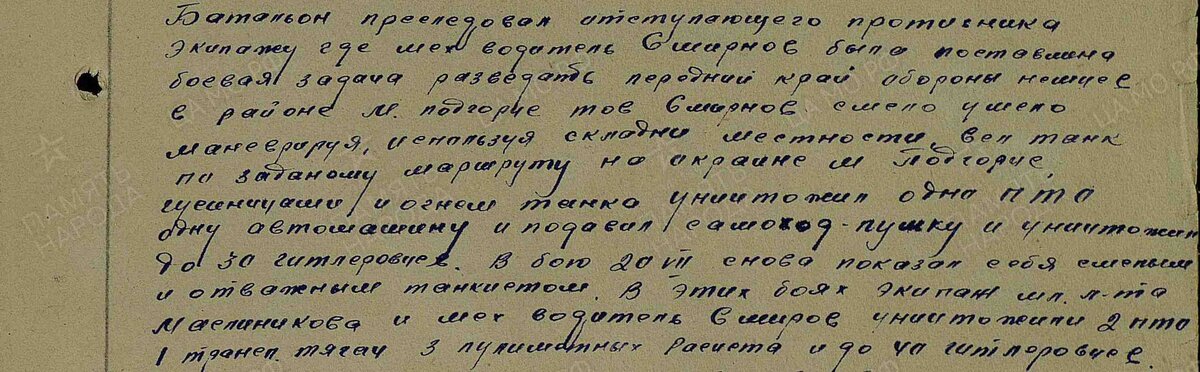 Батальон преследовал отступающего противника
Экипажу где мех водитель Смирнов была поставлена
боевая задача разведать передний край обороны немцев
в районе м. Подгорце тов Смирнов смело умело
маневрируя, используя складки местности, вел танк
по заданому маршруту на окраине м Подгорце
гусеницами и огнем танка уничтожил одна ПТО
одну автомашину и подавил самоход-пушку и уничтожил
до 30 гитлеровцев. В бою 20 VII снова показал себя смелым
и отважным танкистом. В этих боях экипаж мл. л-та
Масленикова и мех водитель Смиров уничтожили 2 пто
1 трансп. тягач 3 пулиметных расчета и до 40 гитлеровцев.
ПАМЯТЬ НАРОДА
ЦА МО РФ